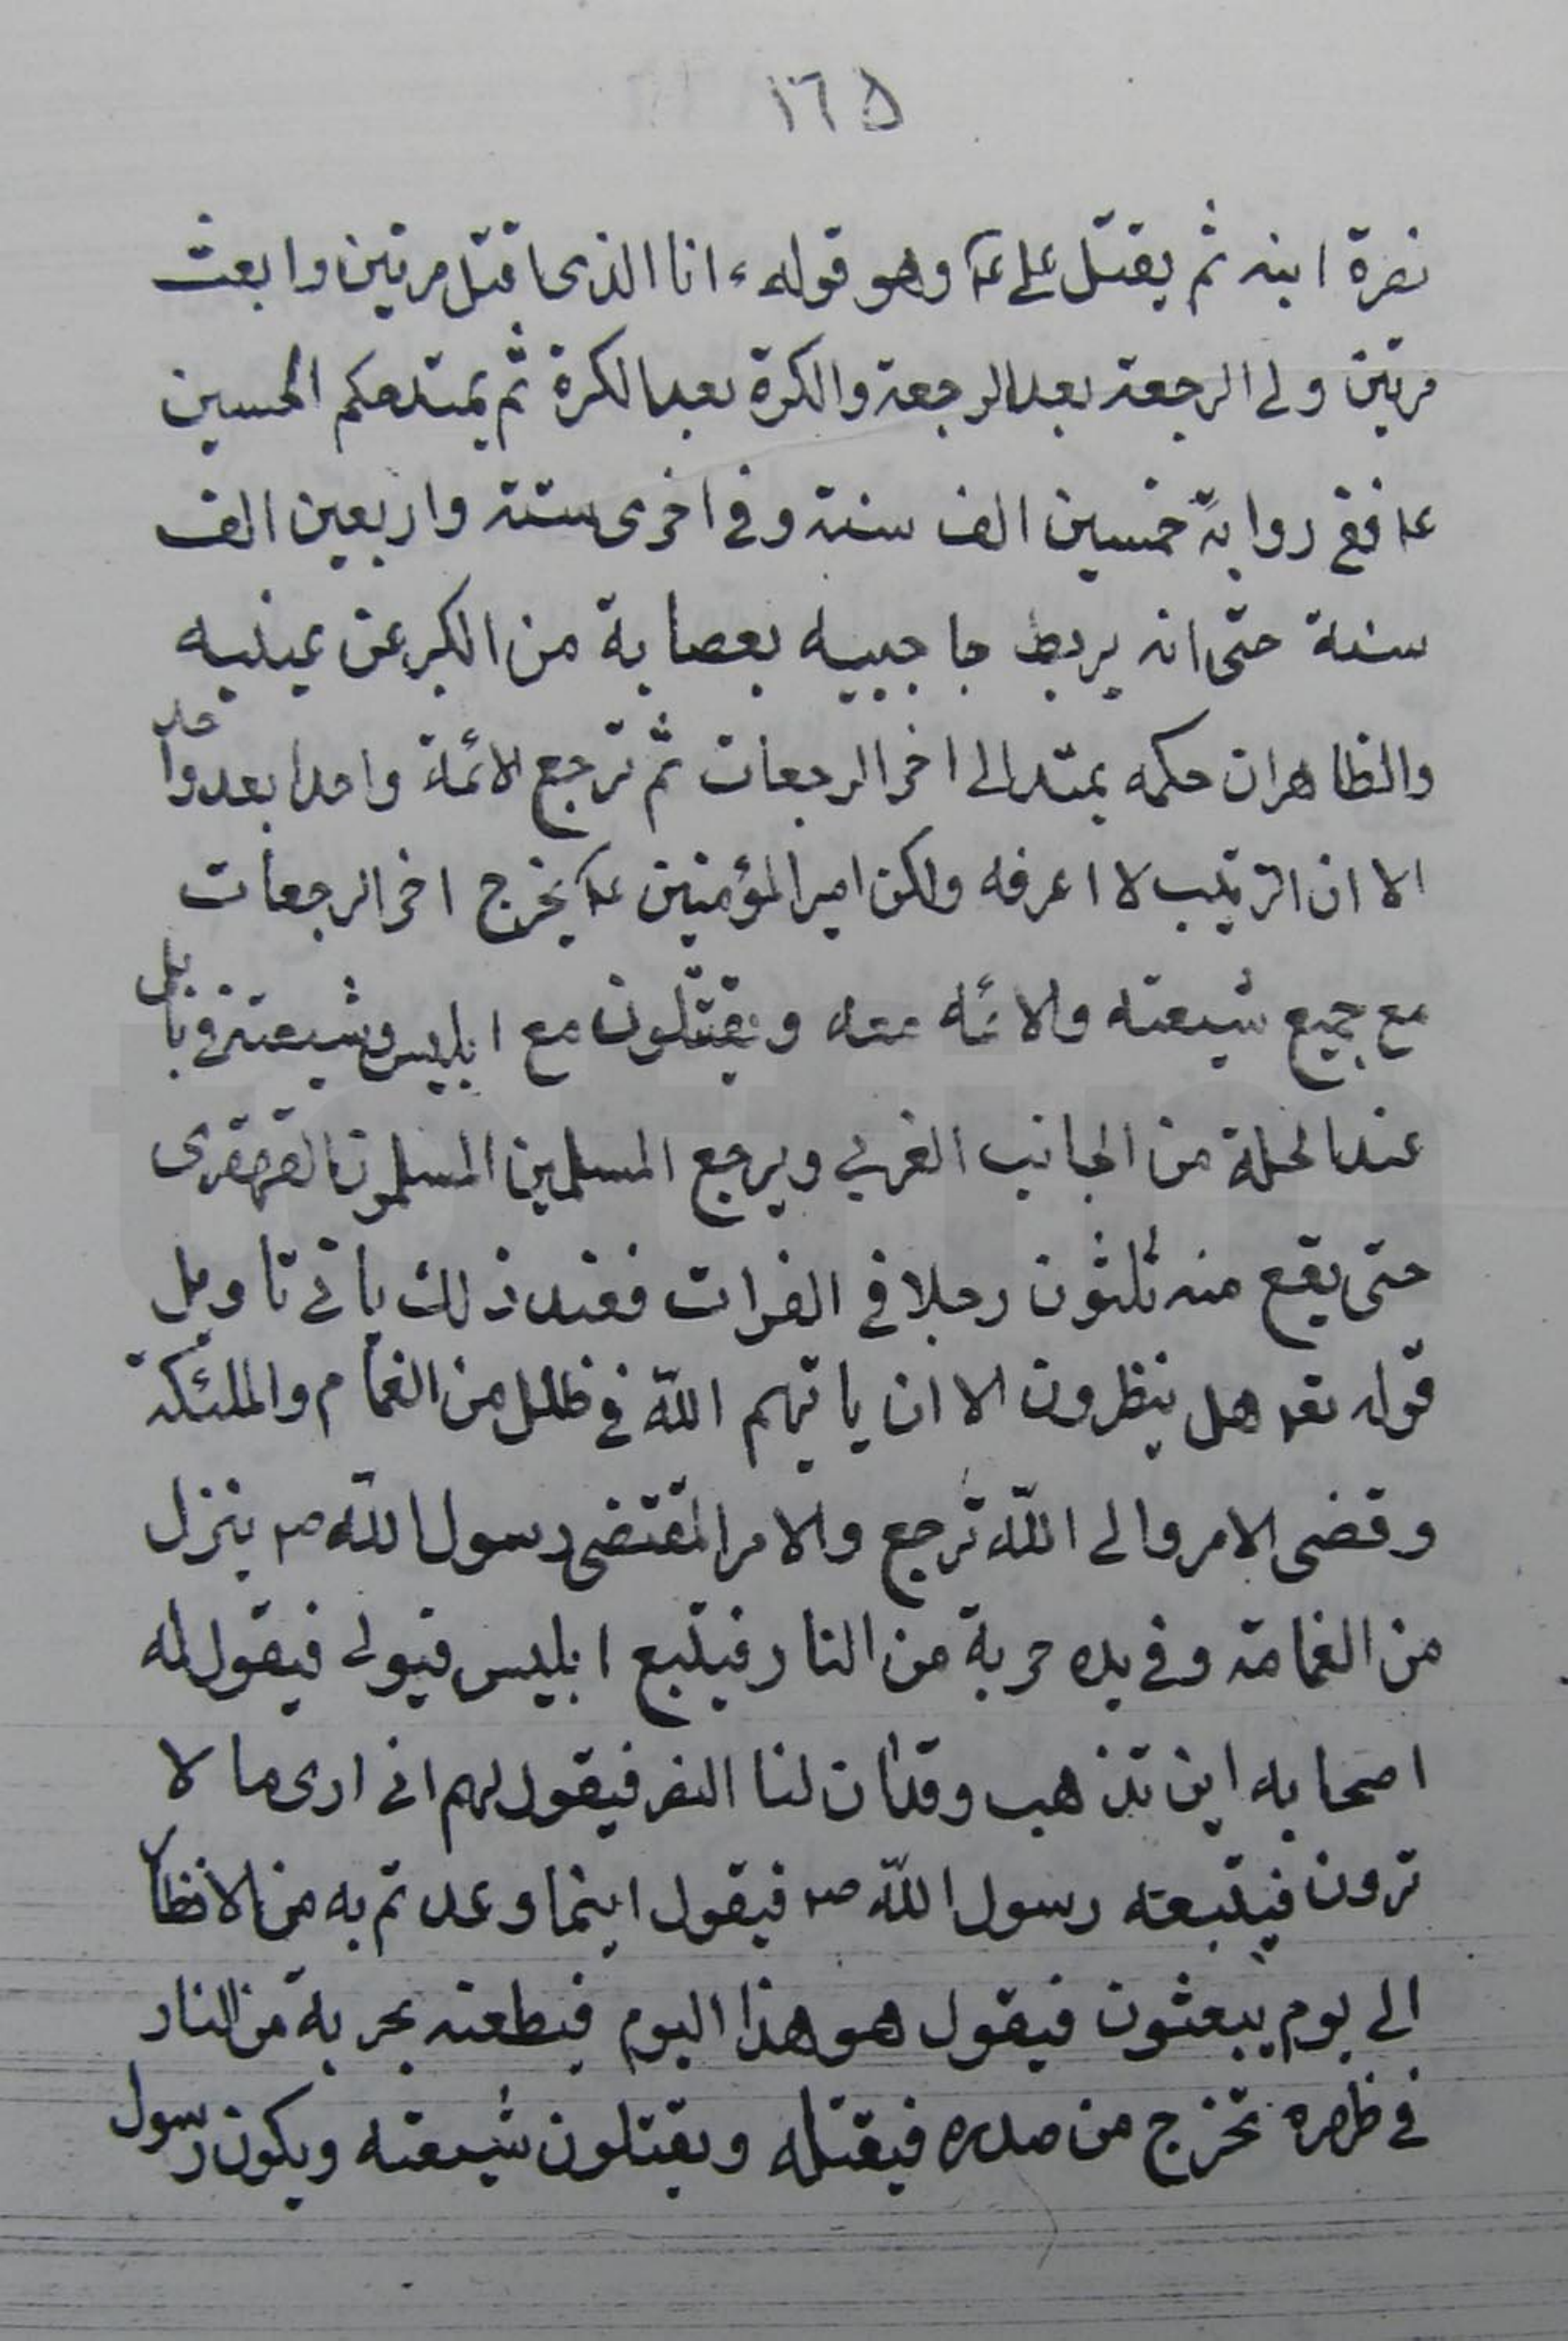 ١٦٥
نصرة ابنه ثم يقتل على ع وهو قوله ع انا الذى اقتل مرتين وابعث
مرتين ولى الرجعة بعد الرجعة والكرة بعد الكرة ثم يمتد حكم الحسين
ع ففى رواية خمسين الف سنة وفى اخرى ستة واربعين الف
سنة حتى انه يربط حاجبيه بعصابة من الكبر عن عينيه
والظاهر ان حكمه يمتد الى اخر الرجعات ثم ترجع الائمة واحدا بعد واحد
الا ان الترتيب لا اعرفه ولكن امير المؤمنين ع يخرج اخر الرجعات
مع جميع شيعته والائمه معه ويقتتلون مع ابليس وشيعته فى بابل
عند الحلة من الجانب الغربى ويرجع المسلمين المسلمون القهقرى
حتى يقع منه ثلثون رجلا فى الفرات فعند ذلك ياتى تاويل
قوله تعه هل ينظرون الا ان ياتيهم الله فى ظلل من الغمام والملئكة
وقضى الامر والى الله ترجع والامر المقتضى رسول الله ص ينزل
من الغمامة وفى يده حربة من النار فيتبع ابليس فيولى فيقول له
اصحابه اين تذهب وقد كان لنا النصر فيقول لهم انى ارى ما لا
ترون فيتبعه رسول الله ص فيقول اينما وعدتم به من الانظار
الى يوم يبعثون فيقول هو هذا اليوم فيطعنه بحربة من النار
فى ظهره تخرج من صدره فيقتله ويقتلون شيعته ويكون رسول